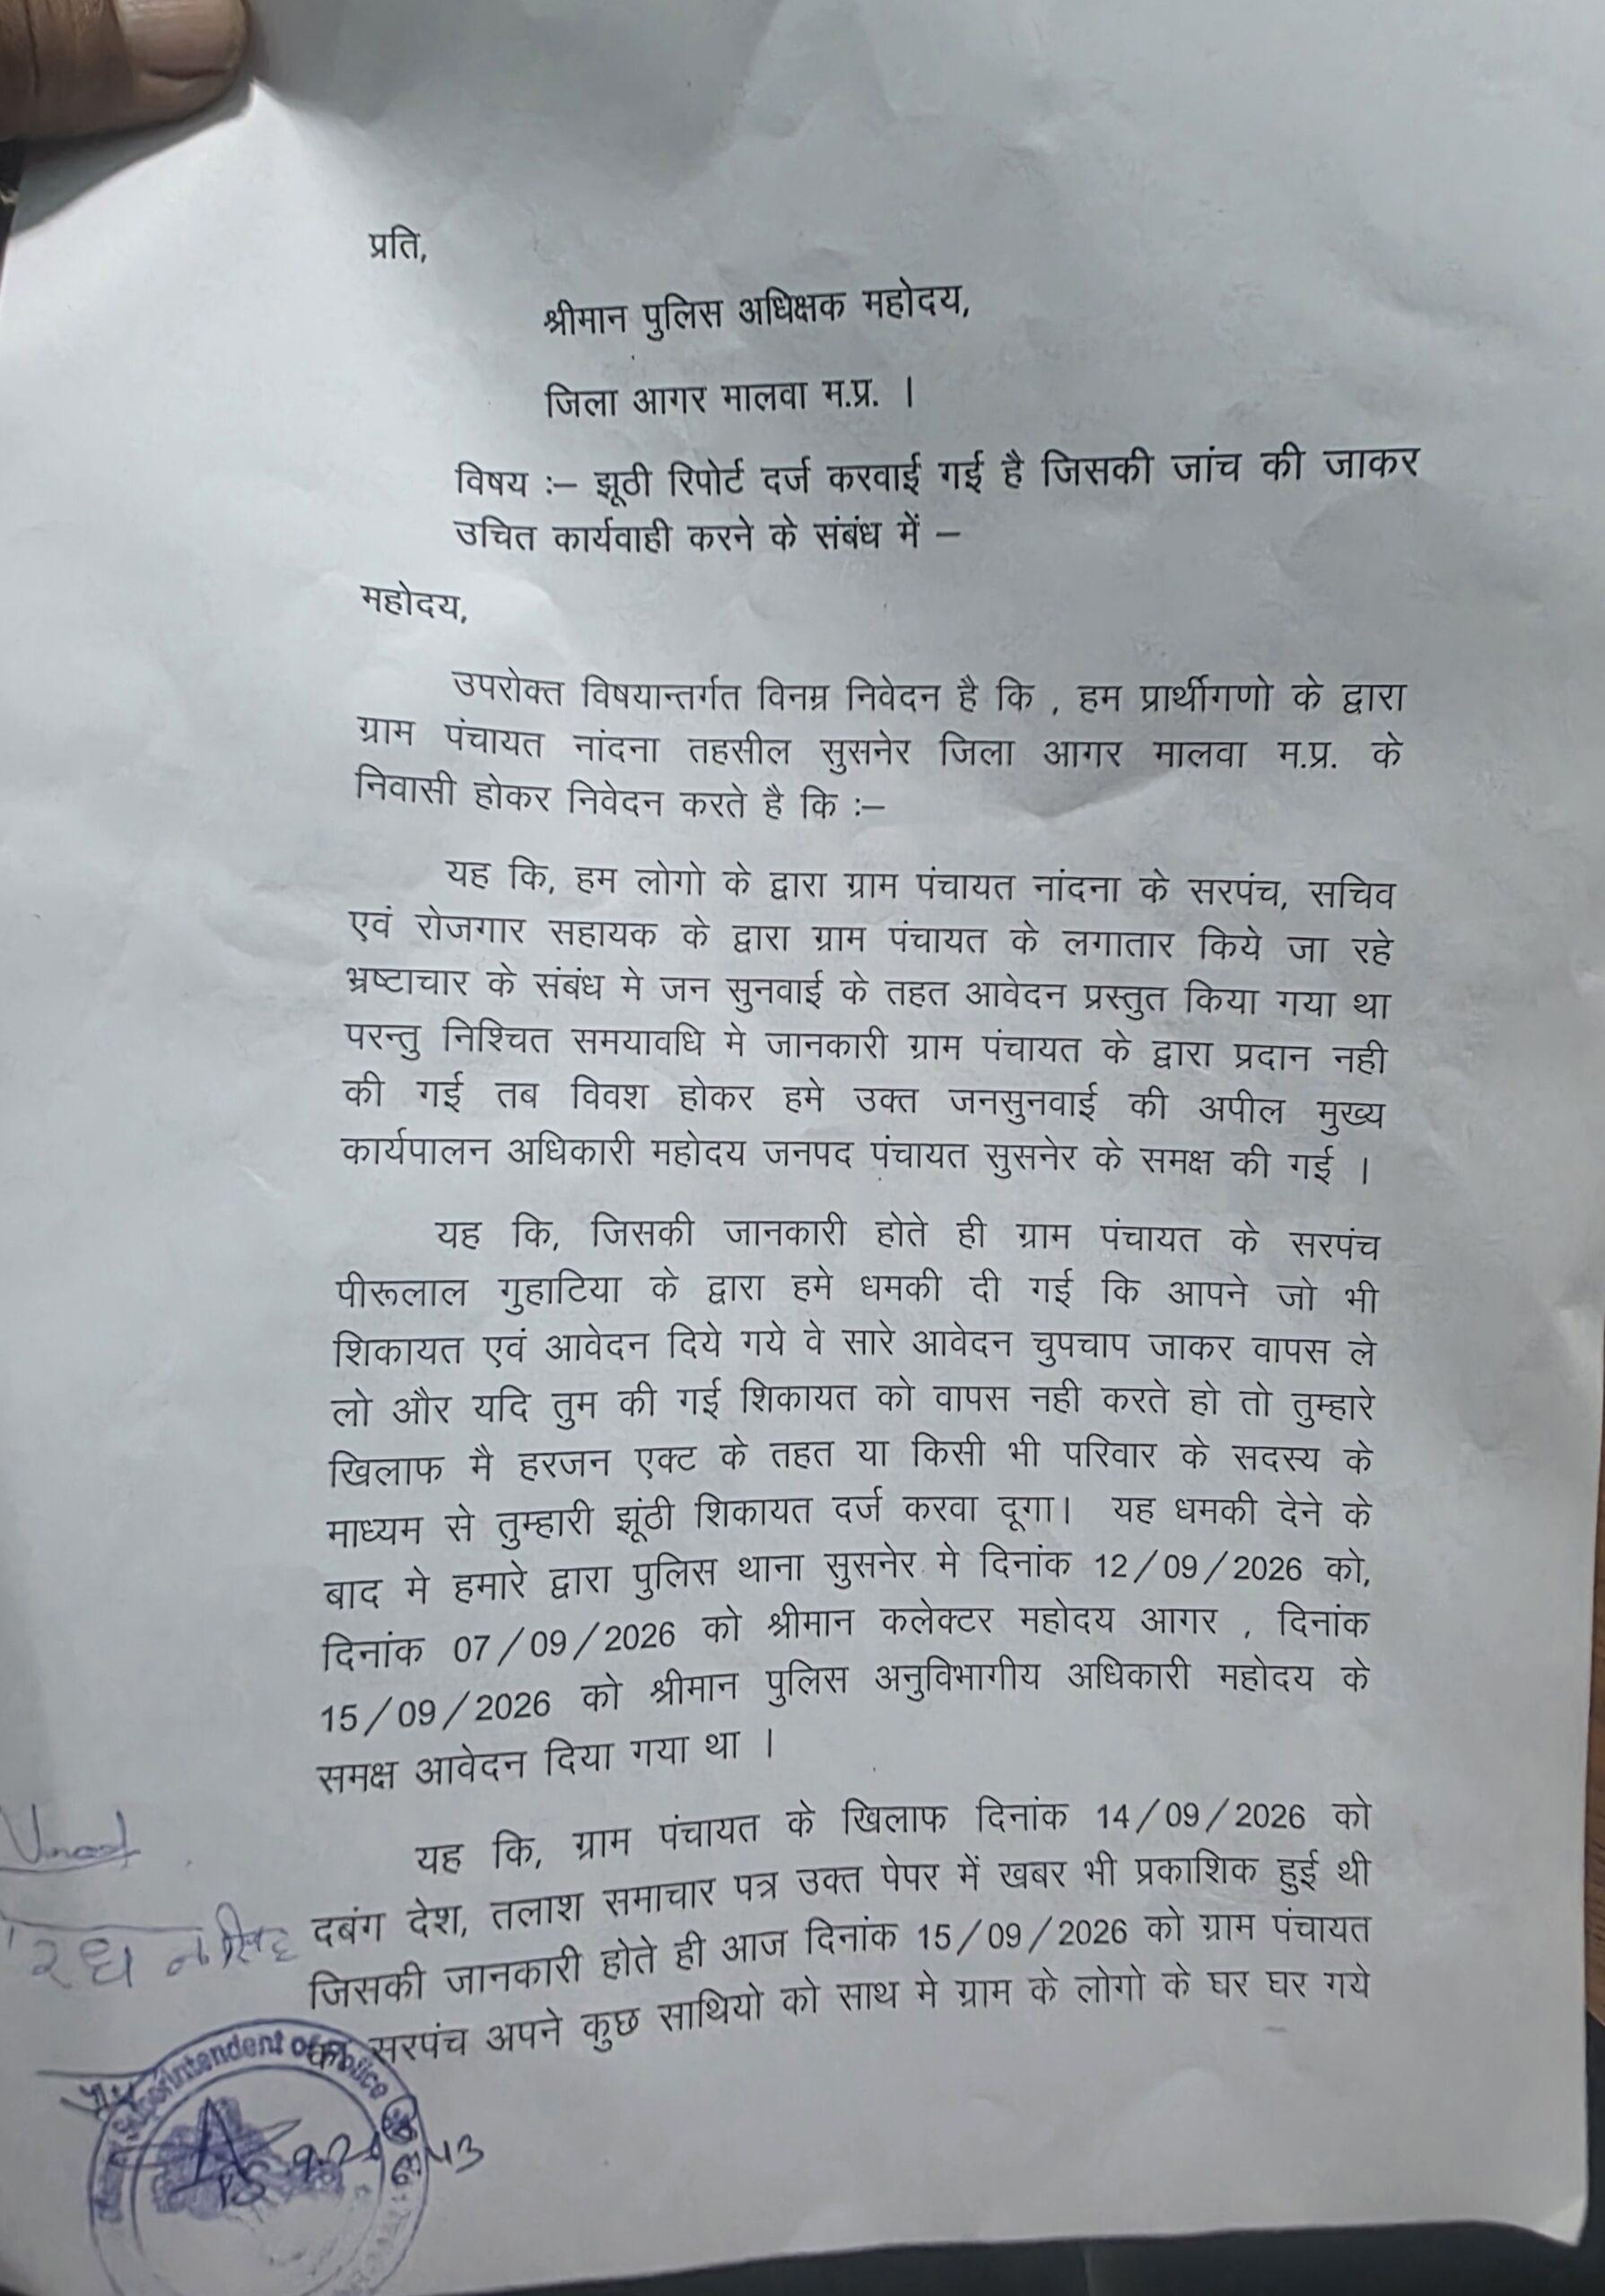 प्रति,
श्रीमान पुलिस अधिक्षक महोदय,
जिला आगर मालवा म.प्र. ।
विषय :– झूठी रिपोर्ट दर्ज करवाई गई है जिसकी जांच की जाकर
उचित कार्यवाही करने के संबंध में –
महोदय,
उपरोक्त विषयान्तर्गत विनम्र निवेदन है कि , हम प्रार्थीगणो के द्वारा
ग्राम पंचायत नांदना तहसील सुसनेर जिला आगर मालवा म.प्र. के
निवासी होकर निवेदन करते है कि :–
यह कि, हम लोगो के द्वारा ग्राम पंचायत नांदना के सरपंच, सचिव
एवं रोजगार सहायक के द्वारा ग्राम पंचायत के लगातार किये जा रहे
भ्रष्टाचार के संबंध मे जन सुनवाई के तहत आवेदन प्रस्तुत किया गया था
परन्तु निश्चित समयावधि मे जानकारी ग्राम पंचायत के द्वारा प्रदान नही
की गई तब विवश होकर हमे उक्त जनसुनवाई की अपील मुख्य
कार्यपालन अधिकारी महोदय जनपद पंचायत सुसनेर के समक्ष की गई ।
यह कि, जिसकी जानकारी होते ही ग्राम पंचायत के सरपंच
पीरूलाल गुहाटिया के द्वारा हमे धमकी दी गई कि आपने जो भी
शिकायत एवं आवेदन दिये गये वे सारे आवेदन चुपचाप जाकर वापस ले
लो और यदि तुम की गई शिकायत को वापस नही करते हो तो तुम्हारे
खिलाफ मै हरजन एक्ट के तहत या किसी भी परिवार के सदस्य के
माध्यम से तुम्हारी झूंठी शिकायत दर्ज करवा दूगा। यह धमकी देने के
बाद मे हमारे द्वारा पुलिस थाना सुसनेर मे दिनांक 12/09/2026 को,
दिनांक 07/09/2026 को श्रीमान कलेक्टर महोदय आगर , दिनांक
15/09/2026 को श्रीमान पुलिस अनुविभागीय अधिकारी महोदय के
समक्ष आवेदन दिया गया था ।
यह कि, ग्राम पंचायत के खिलाफ दिनांक 14/09/2026 को
दबंग देश, तलाश समाचार पत्र उक्त पेपर में खबर भी प्रकाशिक हुई थी
जिसकी जानकारी होते ही आज दिनांक 15/09/2026 को ग्राम पंचायत
सरपंच अपने कुछ साथियो को साथ मे ग्राम के लोगो के घर घर गये
Superintendent of Police